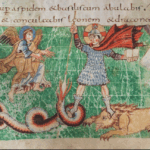 super aspidem & basiliscum ambulabis
& conculcabis leonem & draconem